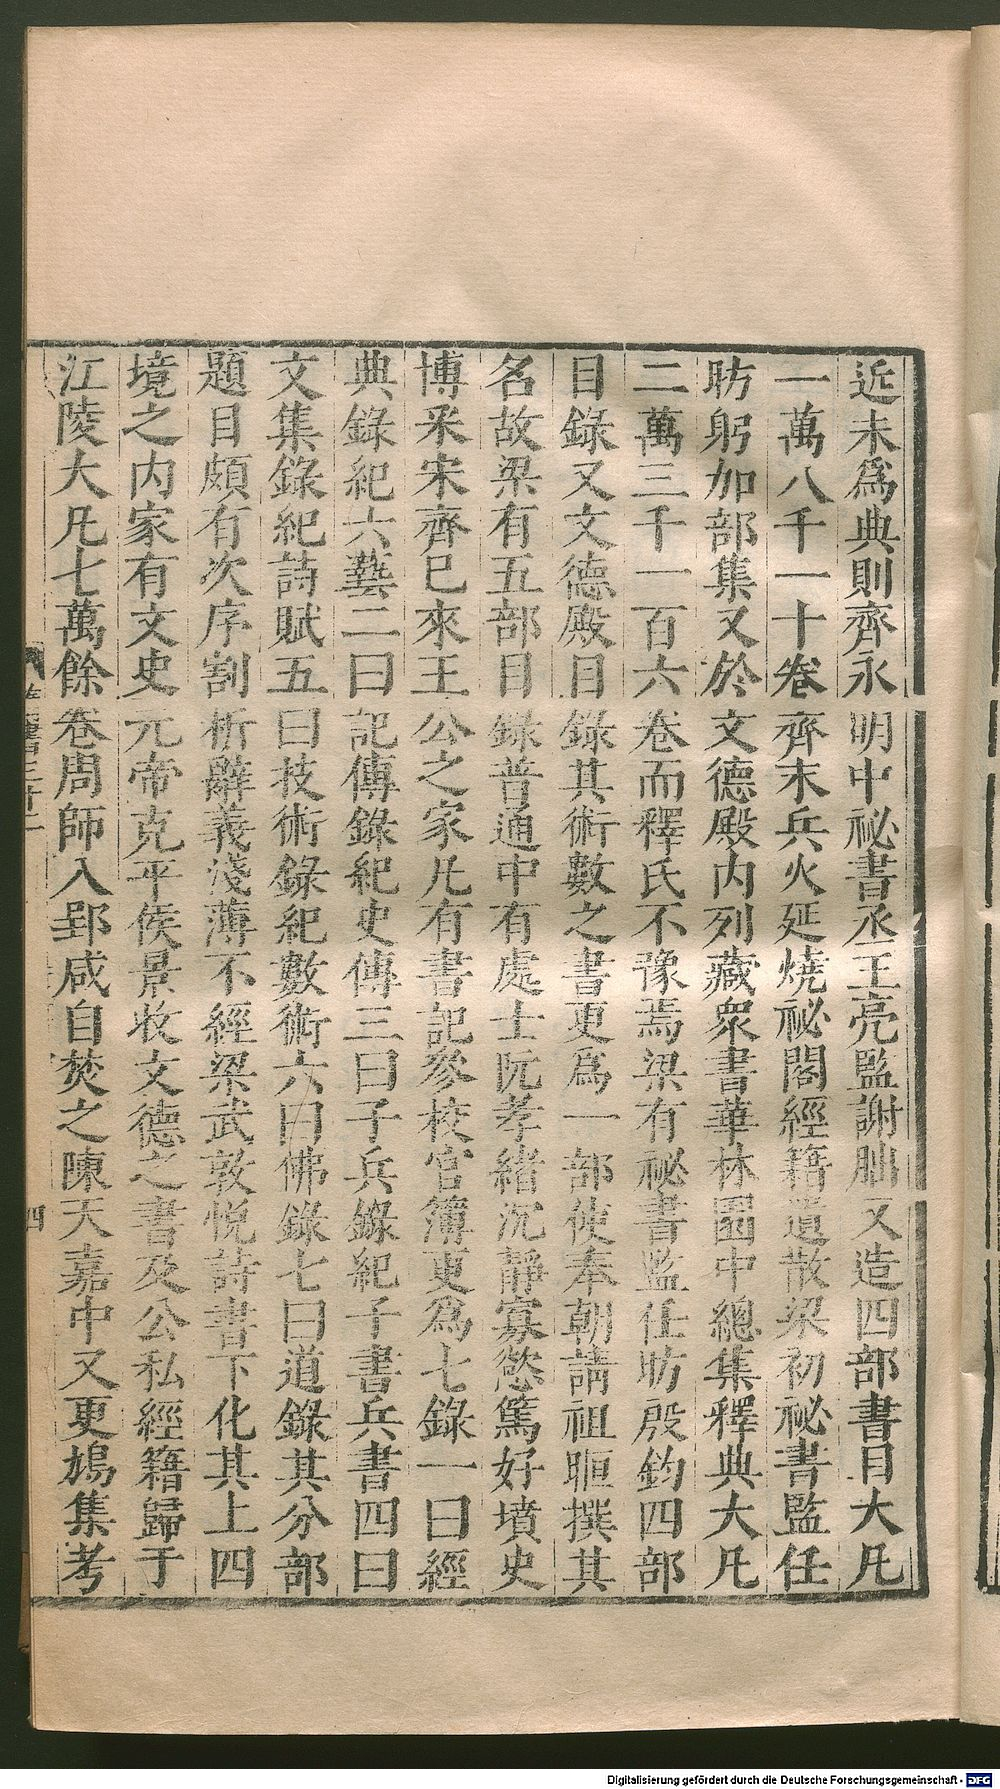 近未爲典則齊永明中祕書丞王亮監謝朏又造四部書目大凡
一萬八千一十卷齊末兵火延燒祕閣經籍遺散梁初祕書監任
昉躬加部集又於文德殿内列藏衆書華林園中總集釋典大凡
二萬三千一百六卷而釋氏不豫焉梁有祕書監任昉殷鈞四部
目錄又文德殿目錄其術數之書更爲一部使奉朝請祖暅撰其
名故梁有五部目錄普通中有處士阮孝緒沉靜寡慾篤好墳史
博采宋齊已來王公之家凡有書記參校官簿更爲七錄一曰經
典錄紀六藝二曰記傳錄紀史傳三曰子兵錄紀子書兵書四曰
文集錄紀詩賦五曰技術錄紀數術六曰佛錄七曰道錄其分部
題目頗有次序割析辭義淺薄不經梁武敦悅詩書下化其上四
境之内家有文史元帝克平侯景收文德之書及公私經籍歸于
江陵大凡七萬餘卷周師入郢咸自焚之陳天嘉中又更鳩集考
四
Digitalisierung gefördert durch die Deutsche Forschungsgemeinschaft - DFG